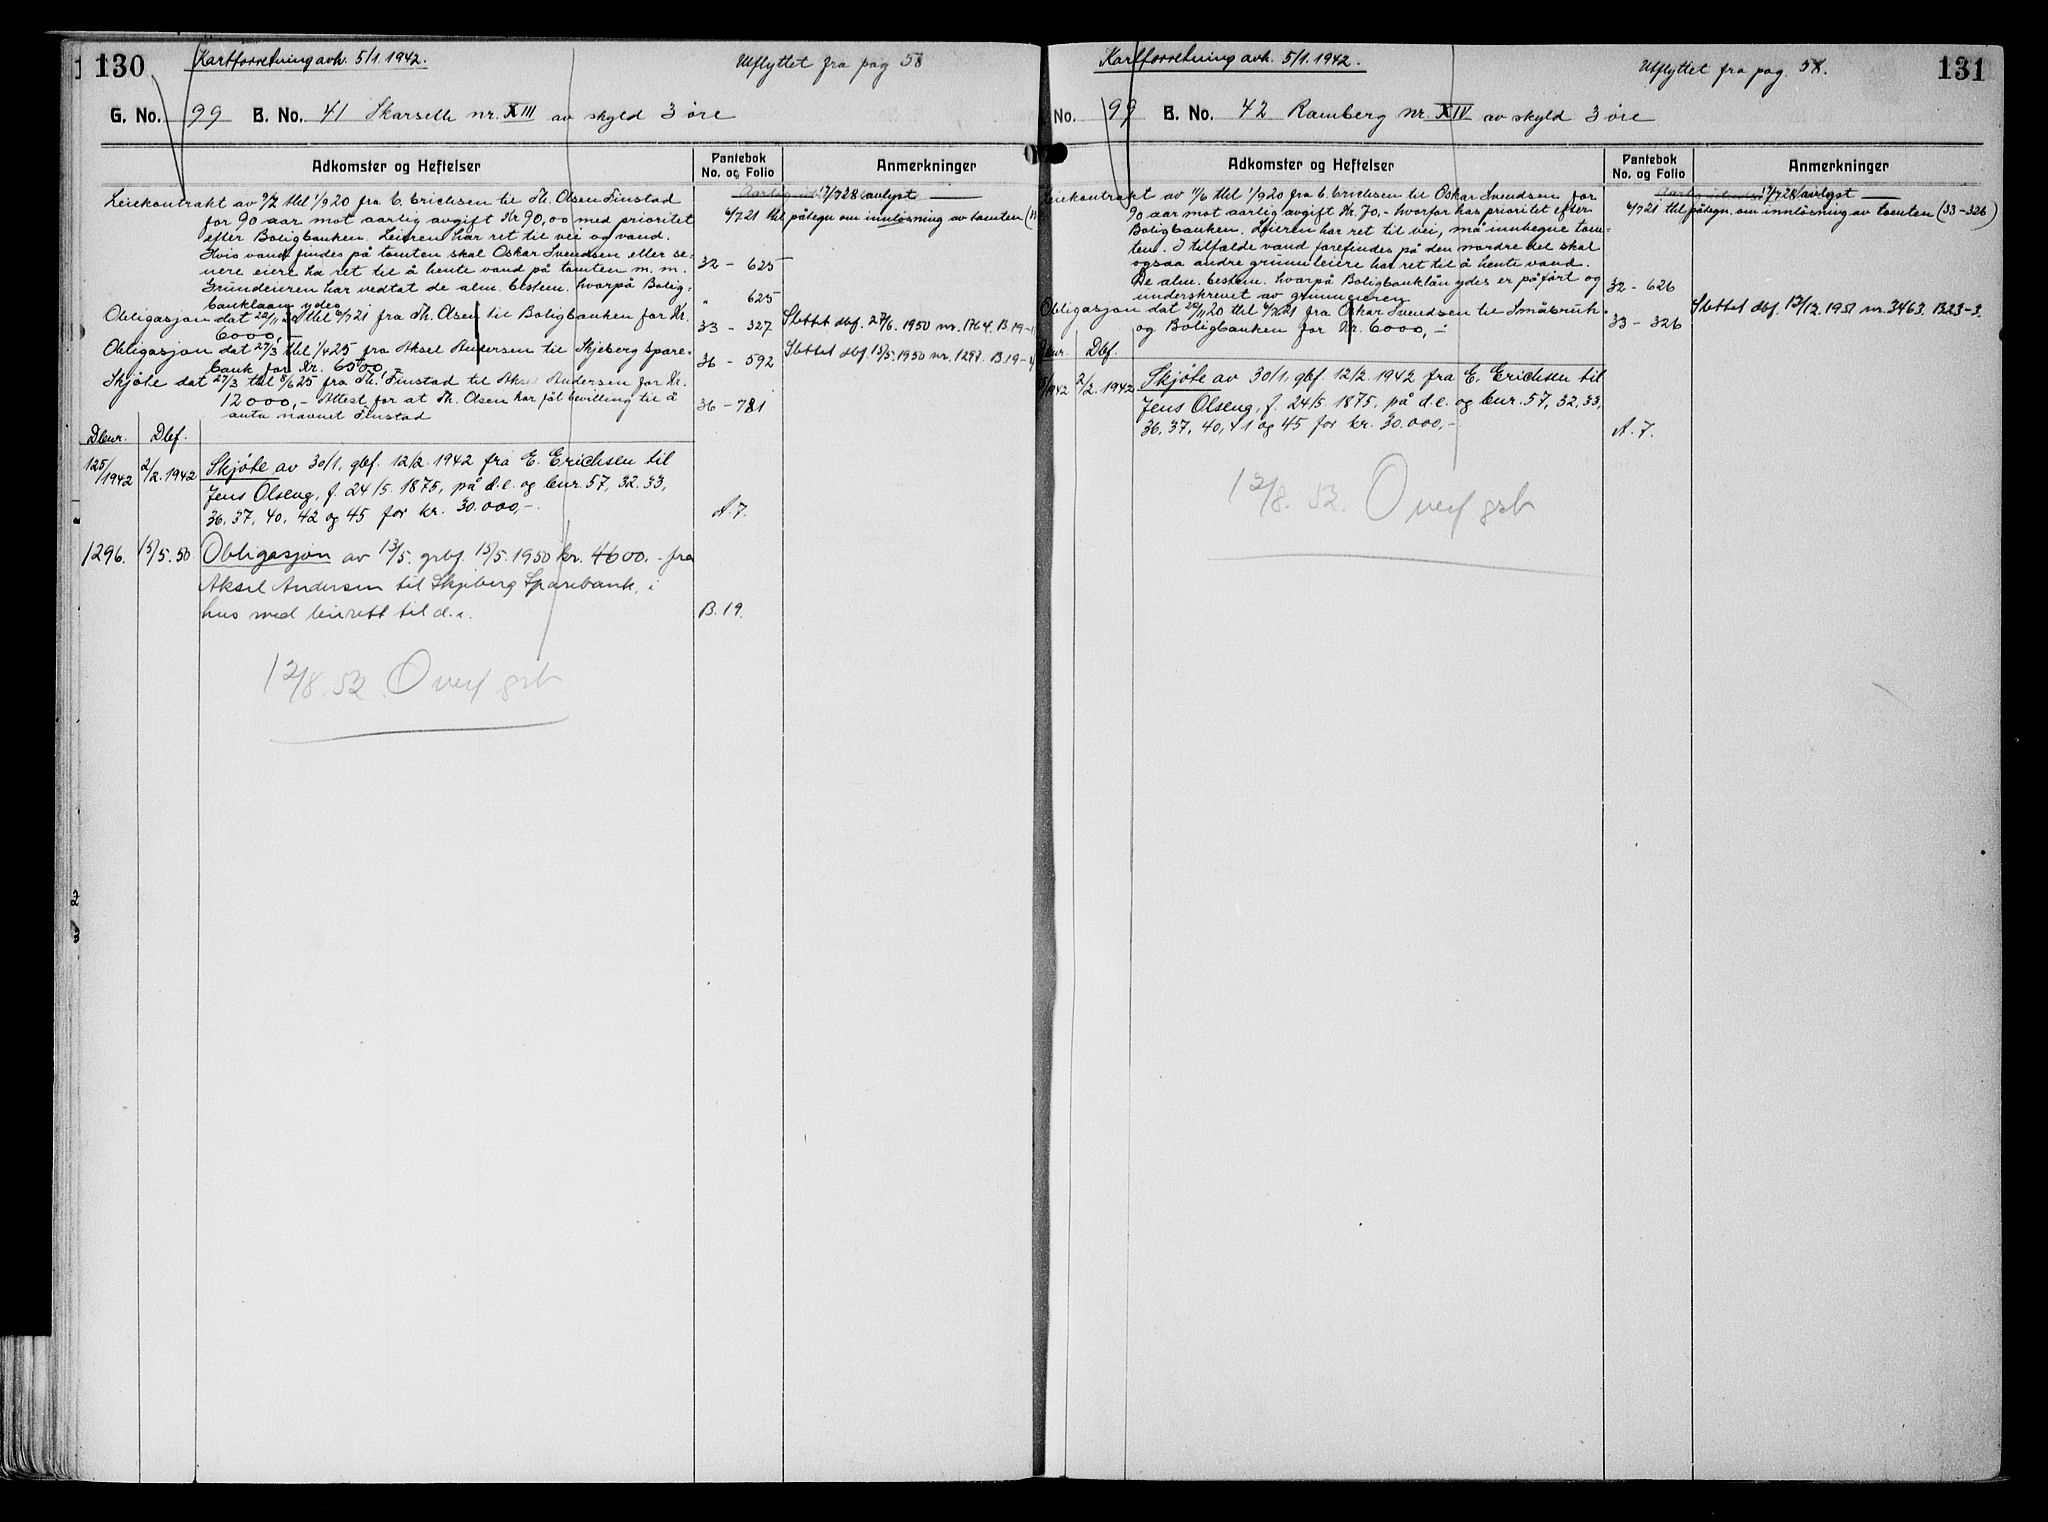 130
Kartforretning avh. 5/1. 1942.
Utflyttet fra pag 58
G. No. 99 B. No. 41 Skarselle nr. XIII av skyld 3 øre
Adkomster og Heftelser
Pantebok No. og Folio
Anmerkninger
17/7 28 avlyst
6/7 21 thl påtegn om innløsning av tomten
Leiekontrakt av 9/7 thl 1/9 20 fra C. Erichsen til Th. Olsen Finstad
for 90 aar mot aarlig avgift Kr 90,00 med prioritet
efter Boligbanken. Leieren har ret til vei og vand.
Hvis vand findes på tomten skal Oskar Svendsen eller se-
nere eiere ha ret til å hente vand på tomten m. m. 32 - 625
Grundeieren har vedtat de alm. bestem. hvorpå Bolig-
banklaan ydes " 625
Obligasjon dat 22/11 20 thl 6/7 21 fra Th. Olsen til Boligbanken for Kr.
6000,- 33 - 327 Slettet dbf. 27/6. 1950 nr. 1764. B 19-
Obligasjon dat 27/3 thl 1/4 25 fra Aksel Andersen til Skjeberg Spare-
bank for Kr. 6500,- 36 - 592 Slettet dbf. 15/5. 1950 nr. 1297. B. 19-4
Skjøte dat 27/3 thl 8/6 25 fra Th. Finstad til Aksel Andersen for Kr.
12000,- Attest for at Th. Olsen har fåt bevilling til å 36 - 781
anta navnet Finstad
Dbnr. Dbf.
125/1942 2/2. 1942 Skjøte av 30/1, gbf. 12/2. 1942 fra E. Erichsen til
Jens Olseng, f. 24/5. 1875, på d.e. og bnr. 57, 32, 33,
36, 37, 40, 42 og 45 for kr. 30.000,-. A. 7.
1296. 15/5. 50 Obligasjon av 13/5. grbf. 15/5. 1950 kr. 4600,- fra
Aksel Andersen til Skjeberg Sparebank, i
hus med leierett til d.e. B. 19.
12/8. 52. Overf grb
131
Kartforretning avh. 5/1. 1942.
Utflyttet fra pag. 58.
No. 99 B. No. 42 Ramberg nr. XIV av skyld 3 øre
Adkomster og Heftelser
Pantebok No. og Folio
Anmerkninger
17/7 28 avlyst
6/7 21 thl påtegn. om innløsning av tomten (33-326)
Leiekontrakt av 11/6 thl 1/9 20 fra C. Erichsen til Oskar Svendsen for
90 aar mot aarlig avgift Kr. 70.- hvorfor has prioritet efter
Boligbanken. Leieren har ret til vei, må innhegne tom-
ten. I tilfælde vand forefindes på den nordre del skal
ogsaa andre grunnleiere ha ret til å hente vand.
De alm. bestem. hvorpå Boligbanklån ydes er påført og 32 - 626
underskrevet av grunneieren
Obligasjon dat 20/11 20 thl 6/7 21 fra Oskar Svendsen til Småbruk- Slettet dbf. 12/12. 1951 nr. 3463. B23-3.
og Boligbanken for Kr. 6000,- 33 - 326
Dbnr. Dbf.
/1942 2/2. 1942 Skjøte av 30/1, gbf. 12/2. 1942 fra E. Erichsen til
Jens Olseng, f. 24/5. 1875, på d.e. og bnr. 57, 32, 33,
36, 37, 40, 41 og 45 for kr. 30.000,- A. 7.
12/8. 52. Overf grb